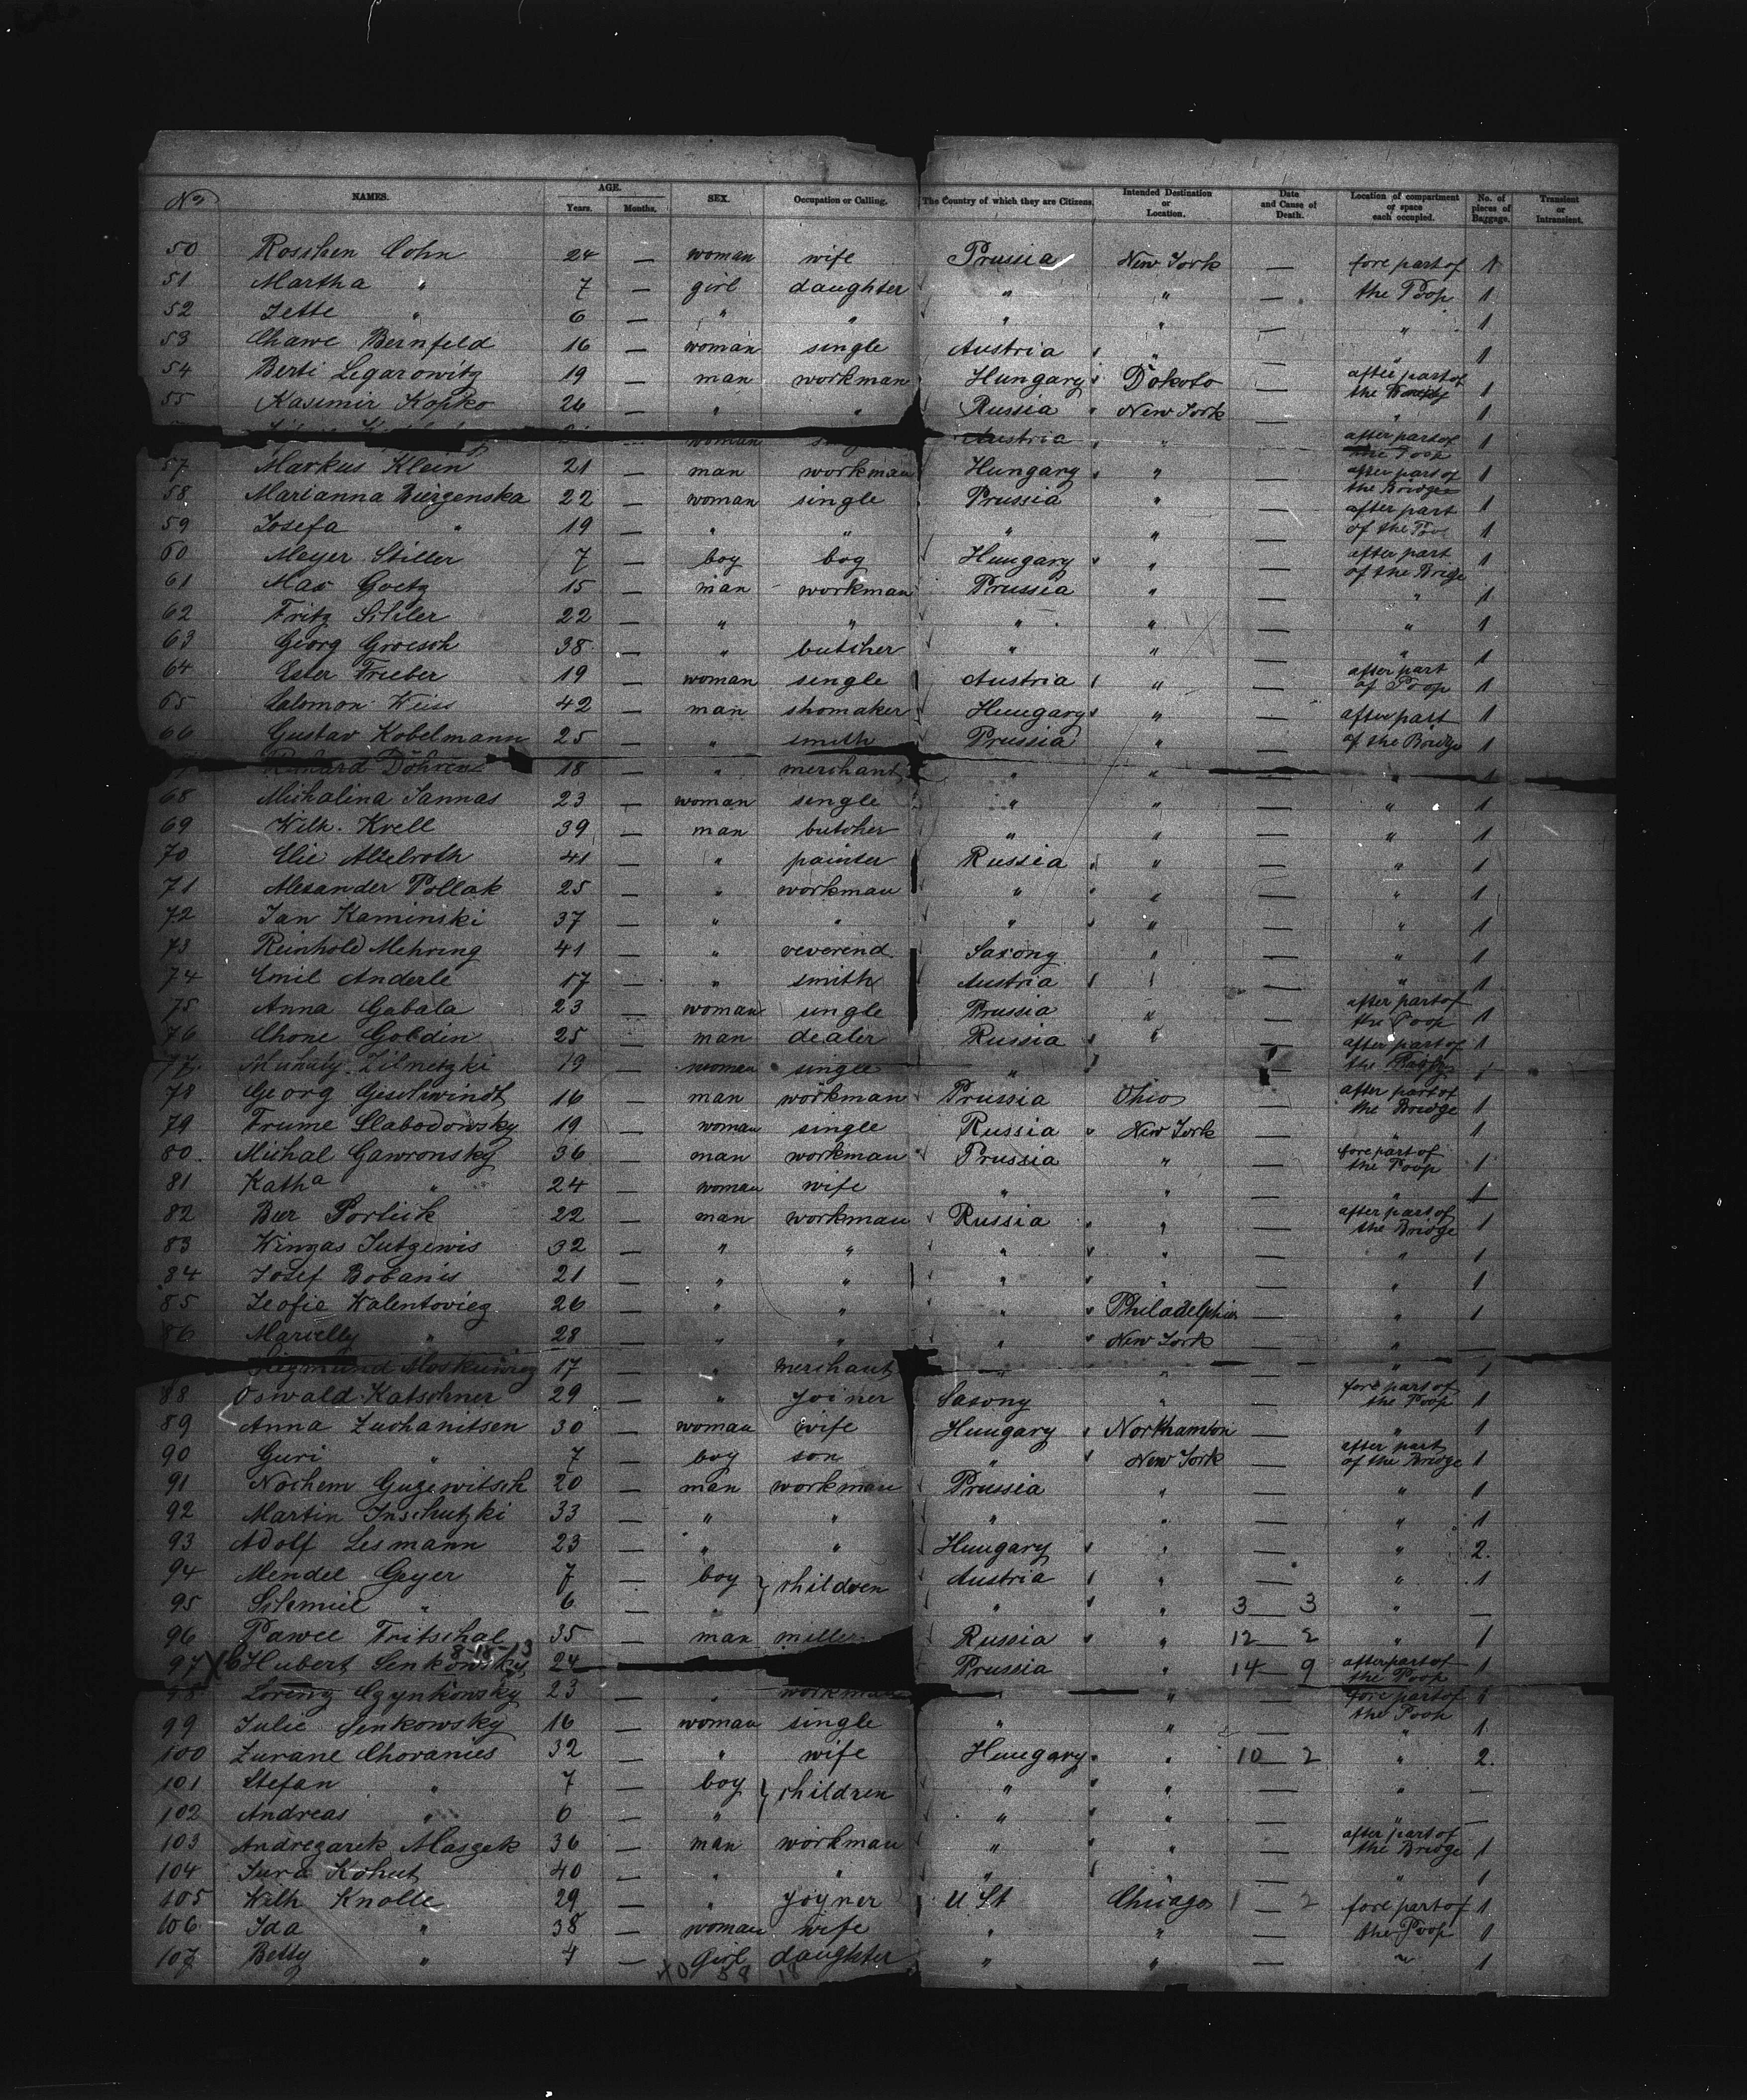 No NAMES. AGE. Years. Months. SEX. Occupation or Calling. The Country of which they are Citizens. Intended Destination or Location. Date and Cause of Death. Location of compartment or space each occupied. No. of pieces of Baggage. Transient or Intransient.
50 Roschen Cohn 24 — woman wife Prussia New York — fore part of 1
51 Martha " 7 — girl daughter " " — the Poop 1
52 Jette " 6 — " " " " — " 1
53 Chawe Bernfeld 16 — woman single Austria " — " 1
54 Berti Legarowitz 19 — man workman Hungary Dokoto — after part of the 1
55 Kasimir Kopko 26 — " " Russia New York — " 1
woman Austria " — after part of the Poop 1
57 Markus Klein 21 — man workman Hungary " — after part of the Bridge 1
58 Marianna 22 — woman single Prussia " — after part 1
59 Josefa " 19 — " " " " — of the 1
60 Meyer Stiller 7 — boy boy Hungary " — after part of the Brige 1
61 Max Goetz 15 — man workman Prussia " — " 1
62 Fritz 22 — " " " " — " 1
63 Georg Groesch 38 — " butcher " " — " 1
64 Ester Frieber 19 — woman single Austria " — after part of Poop 1
65 Salomon Weiss 42 — man shomaker Hungary " — after part 1
66 Gustav Kobelmann 25 — " smith Prussia " — of the Bridge 1
Döhren 18 — " merchant " " — " 1
68 Michalina Jannas 23 — woman single " " — " 1
69 Wilh. Krell 39 — man butcher " " — " 1
70 Elie 41 — " painter Russia " — " 1
71 Alexander Pollak 25 — " workman " " — " 1
72 Jan Kaminski 37 — " " " " — " 1
73 Reinhold Mehring 41 — " reverend Saxony " — " 1
74 Emil Anderle 17 — " smith Austria " — " 1
75 Anna Gabala 23 — woman single Prussia " — after part of the Poop 1
76 Chone Goldin 25 — man dealer Russia " — after part of 1
77 19 — woman single " the
78 Georg Geschwindt 16 — man workman Prussia Ohio — after part of the Bridge 1
79 Frume Slabodowsky 19 — woman single Russia New York — " 1
80. Michal Gawronsky 36 — man workman Prussia " — fore part of the Poop 1
81 Katha " 24 — woman wife " " — " 1
82 Ber 22 — man workman Russia " — after part of the Bridge 1
83 Wingas Jutgewis 32 — " " " " — " 1
84 Josef Bobanis 21 — " " " " — " 1
85 Zeofie Walentovicz 26 — " " " Philadelphia — " 1
86 Marielly " 28 — " " " New York — "
17 — " merchant " " — " 1
88 Oswald Katschner 29 — " joiner Saxony " — fore part of the Poop 1
89 Anna 30 — woman wife Hungary Northamton — " 1
90 Guri " 7 — boy son " New York — after part of the Bridge 1
91 Nochem Gugewitsch 20 — man workman Prussia " — " 1
92 Martin Inschutzki 33 — " " " " — " 1
93 Adolf Lesmann 23 — " " Hungary " — " 2.
94 Mendel Geyer 7 — boy } children Austria " — " 1
95 Schmiel " 6 — " " " 3 — 3 " —
96 Pawel Fritschal 35 — man miller Russia " 12 — 2 " 1
97 Hubert Senkowsky 8-18-13 24 Prussia " 14 — 9 after part of the Poop 1
98 Lorenz Czynkowsky 23 — " workman " — fore part of the Poop 1
99 Julie Senkowsky 16 — woman single " " — " 1
100 Zurane Choranies 32 — " wife Hungary " 10 — 2 " 2.
101 Stefan " 7 — boy } children " " — " —
102 Andreas " 6 — " " " — " —
103 Andregarek Maszek 36 — man workman " " — after part of the Bridge 1
104 Jura Kohut 40 — " " " " — " 1
105 Wilh Knolle 29 — " joyner U. St Chicago 1 — 2 fore part of 1
106 Ida " 38 — woman wife " " — the Poop 1
107 Betty " 4 — Girl daughter " " — " 1
40 58 18